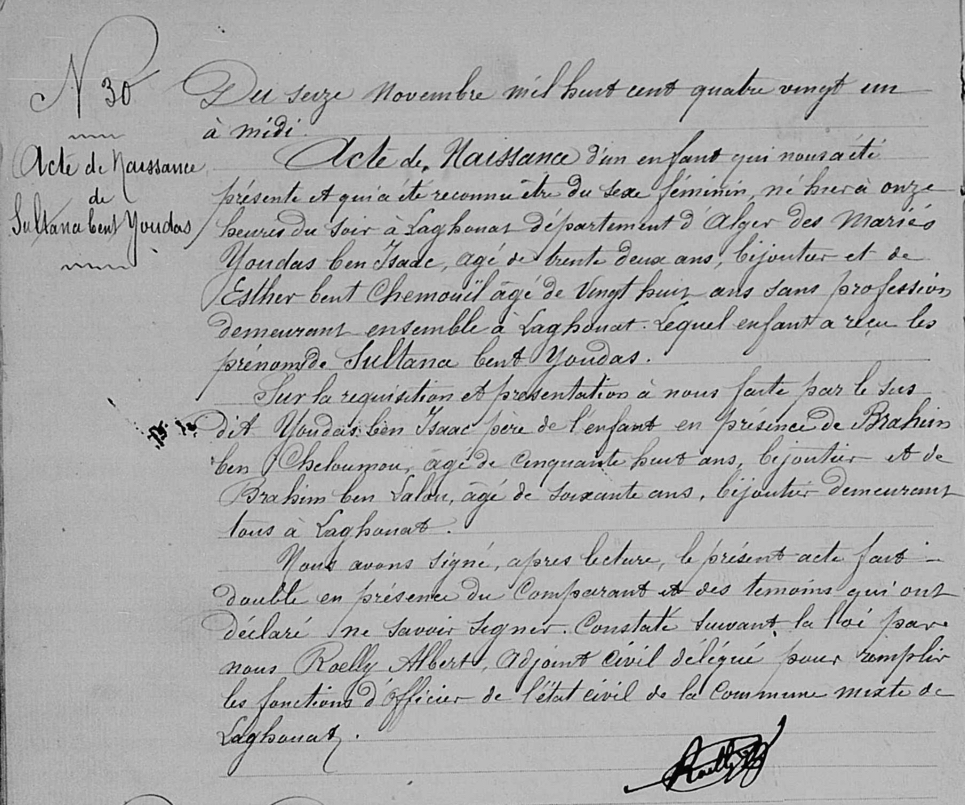 N 30
Acte de Naissance
de
Sultana bent Youdas
Du seize Novembre mil huit cent quatre vingt un
à midi.
Acte de Naissance d'un enfant qui nous a été
présenté et qui a été reconnu être du sexe féminin, né hier à onze
heures du soir à Laghouat département d'Alger des Mariés
Youdas ben Isaac, agé de trente deux ans, bijoutier et de
Esther bent Chemouïl âgé de vingt huit ans sans profession
demeurant ensemble à Laghouat. Lequel enfant a reçu les
prénom de Sultana bent Youdas.
Sur la requisition et présentation à nous faite par le sus
dit Youdas ben Isaac père de l'enfant en présence de Brahim
ben Cheloumou, âgé de cinquante huit ans, bijoutier et de
Brahim ben Lalou, âgé de soixante ans, bijoutier demeurant
tous à Laghouat.
Nous avons signé, apres lecture, le présent acte fait
double en présence du Comparant et des temoins qui ont
déclaré ne savoir signer. Constaté suivant la loi par
nous Roelly Albert, Adjoint civil délégué pour remplir
les fonctions d'Officier de l'état civil de la Commune mixte de
Laghouat.
Roelly